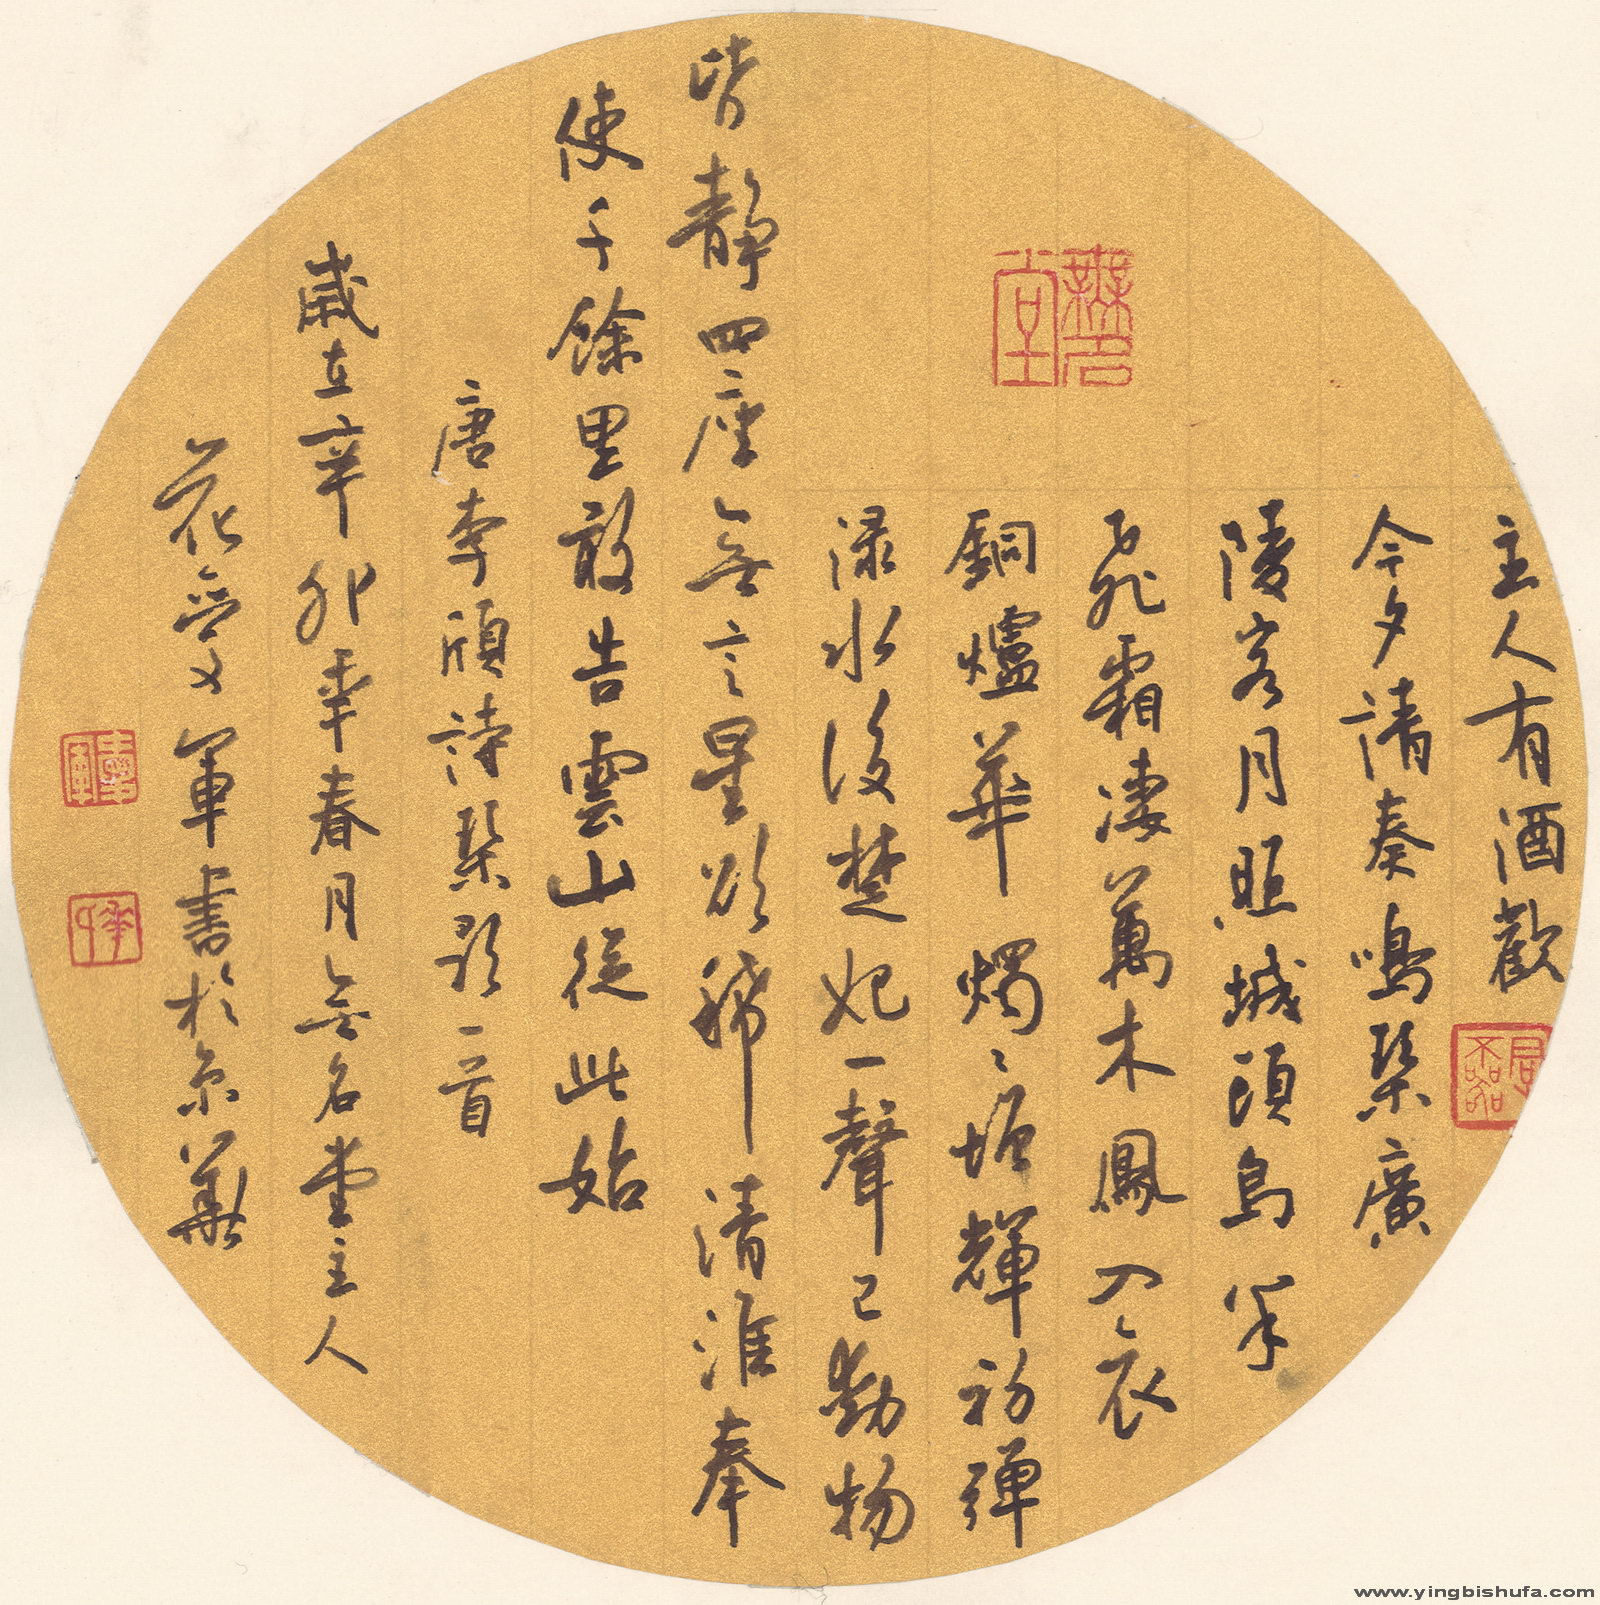 主人有酒歡
今夕請奏鳴琴廣
陵客月照城頭烏半
飛霜淒萬木鳳入衣
銅爐華燭〻增輝初彈
淥水後楚妃一聲已動物
皆靜四座無言星欲稀清淮奉
使千餘里敢告雲山從此始
唐李頎詩琴歌一首
歲在辛卯年春月無名堂主人
花愛軍書於京華
無名堂
www.yingbishufa.com